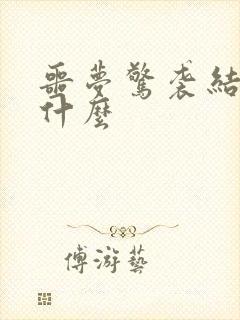 噩夢驚袭結
什麼
傅游藝